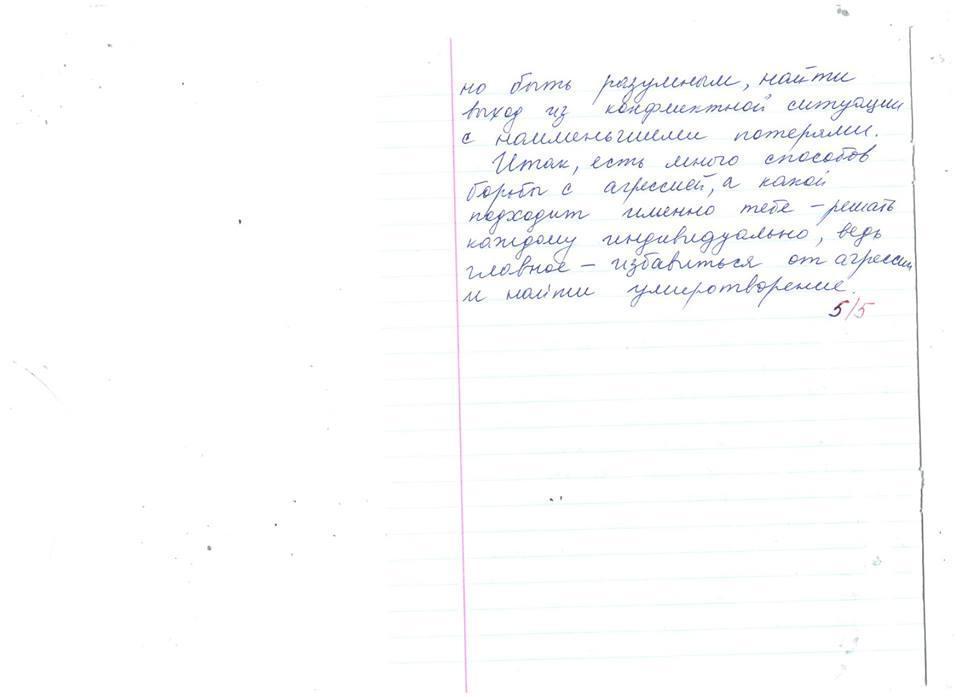 но быть разумным, найти
выход из конфликтной ситуации
с наименьшими потерями.
Итак, есть много способов
борьбы с агрессией, а какой
подходит именно тебе – решать
каждому индивидуально, ведь
главное – избавиться от агрессии
и найти умиротворение.
5/5